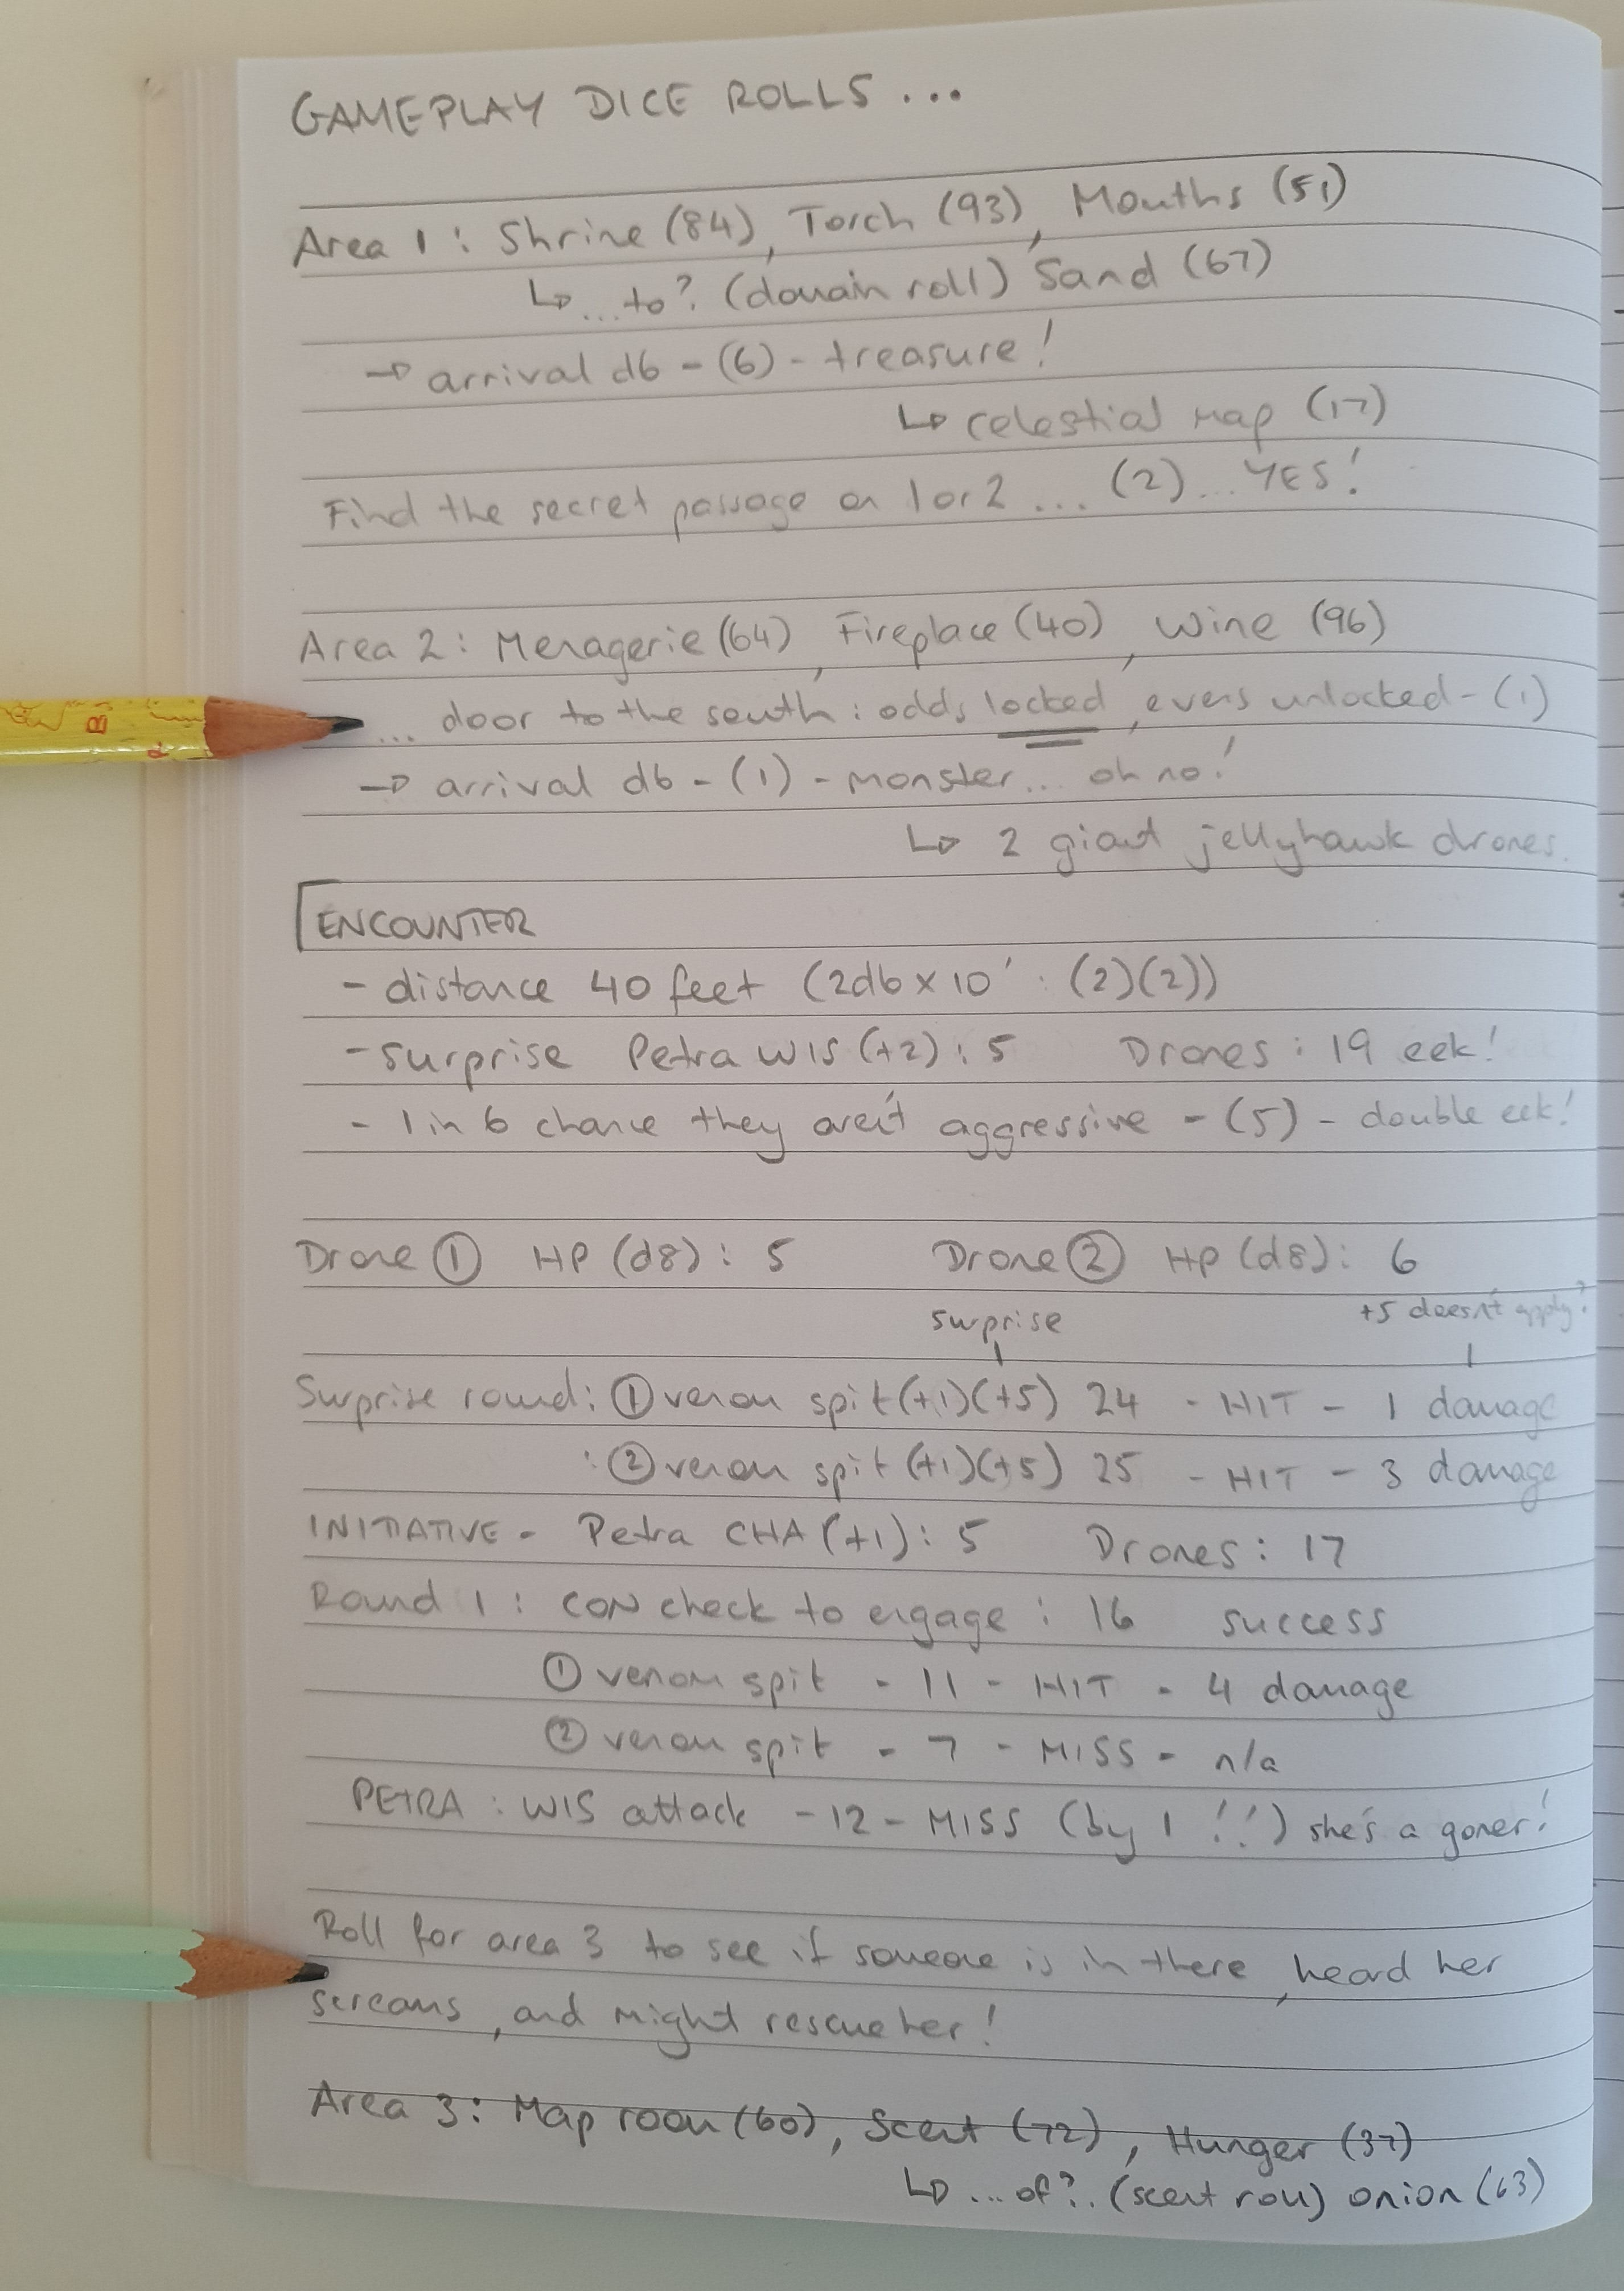 GAMEPLAY DICE ROLLS ...
Area 1 : Shrine (84), Torch (93), Mouths (51)
↳ ...to? (domain roll) Sand (67)
→ arrival d6 - (6) - treasure!
↳ celestial map (17)
Find the secret passage on 1 or 2 ... (2) ... YES!
Area 2 : Menagerie (64), Fireplace (40), Wine (96)
... door to the south : odds locked, evens unlocked - (1)
→ arrival d6 - (1) - monster... oh no!
↳ 2 giant jellyhawk drones.
ENCOUNTER
- distance 40 feet (2d6 x 10' : (2)(2))
- surprise Petra WIS (+2) : 5 Drones : 19 eek!
- 1 in 6 chance they aren't aggressive - (5) - double eek!
Drone ① HP (d8) : 5 Drone ② HP (d8) : 6
surprise +5 doesn't apply?
Surprise round : ① venom spit (+1)(+5) 24 - HIT - 1 damage
: ② venom spit (+1)(+5) 25 - HIT - 3 damage
INITIATIVE - Petra CHA (+1) : 5 Drones : 17
Round 1 : CON check to engage : 16 success
① venom spit - 11 - HIT - 4 damage
② venom spit - 7 - MISS - n/a
PETRA : WIS attack - 12 - MISS (by 1 !!) she's a goner!
Roll for area 3 to see if someone is in there, heard her
screams, and might rescue her!
Area 3 : Map room (60), Scent (72), Hunger (37)
↳ ...of?. (scent roll) onion (63)
B